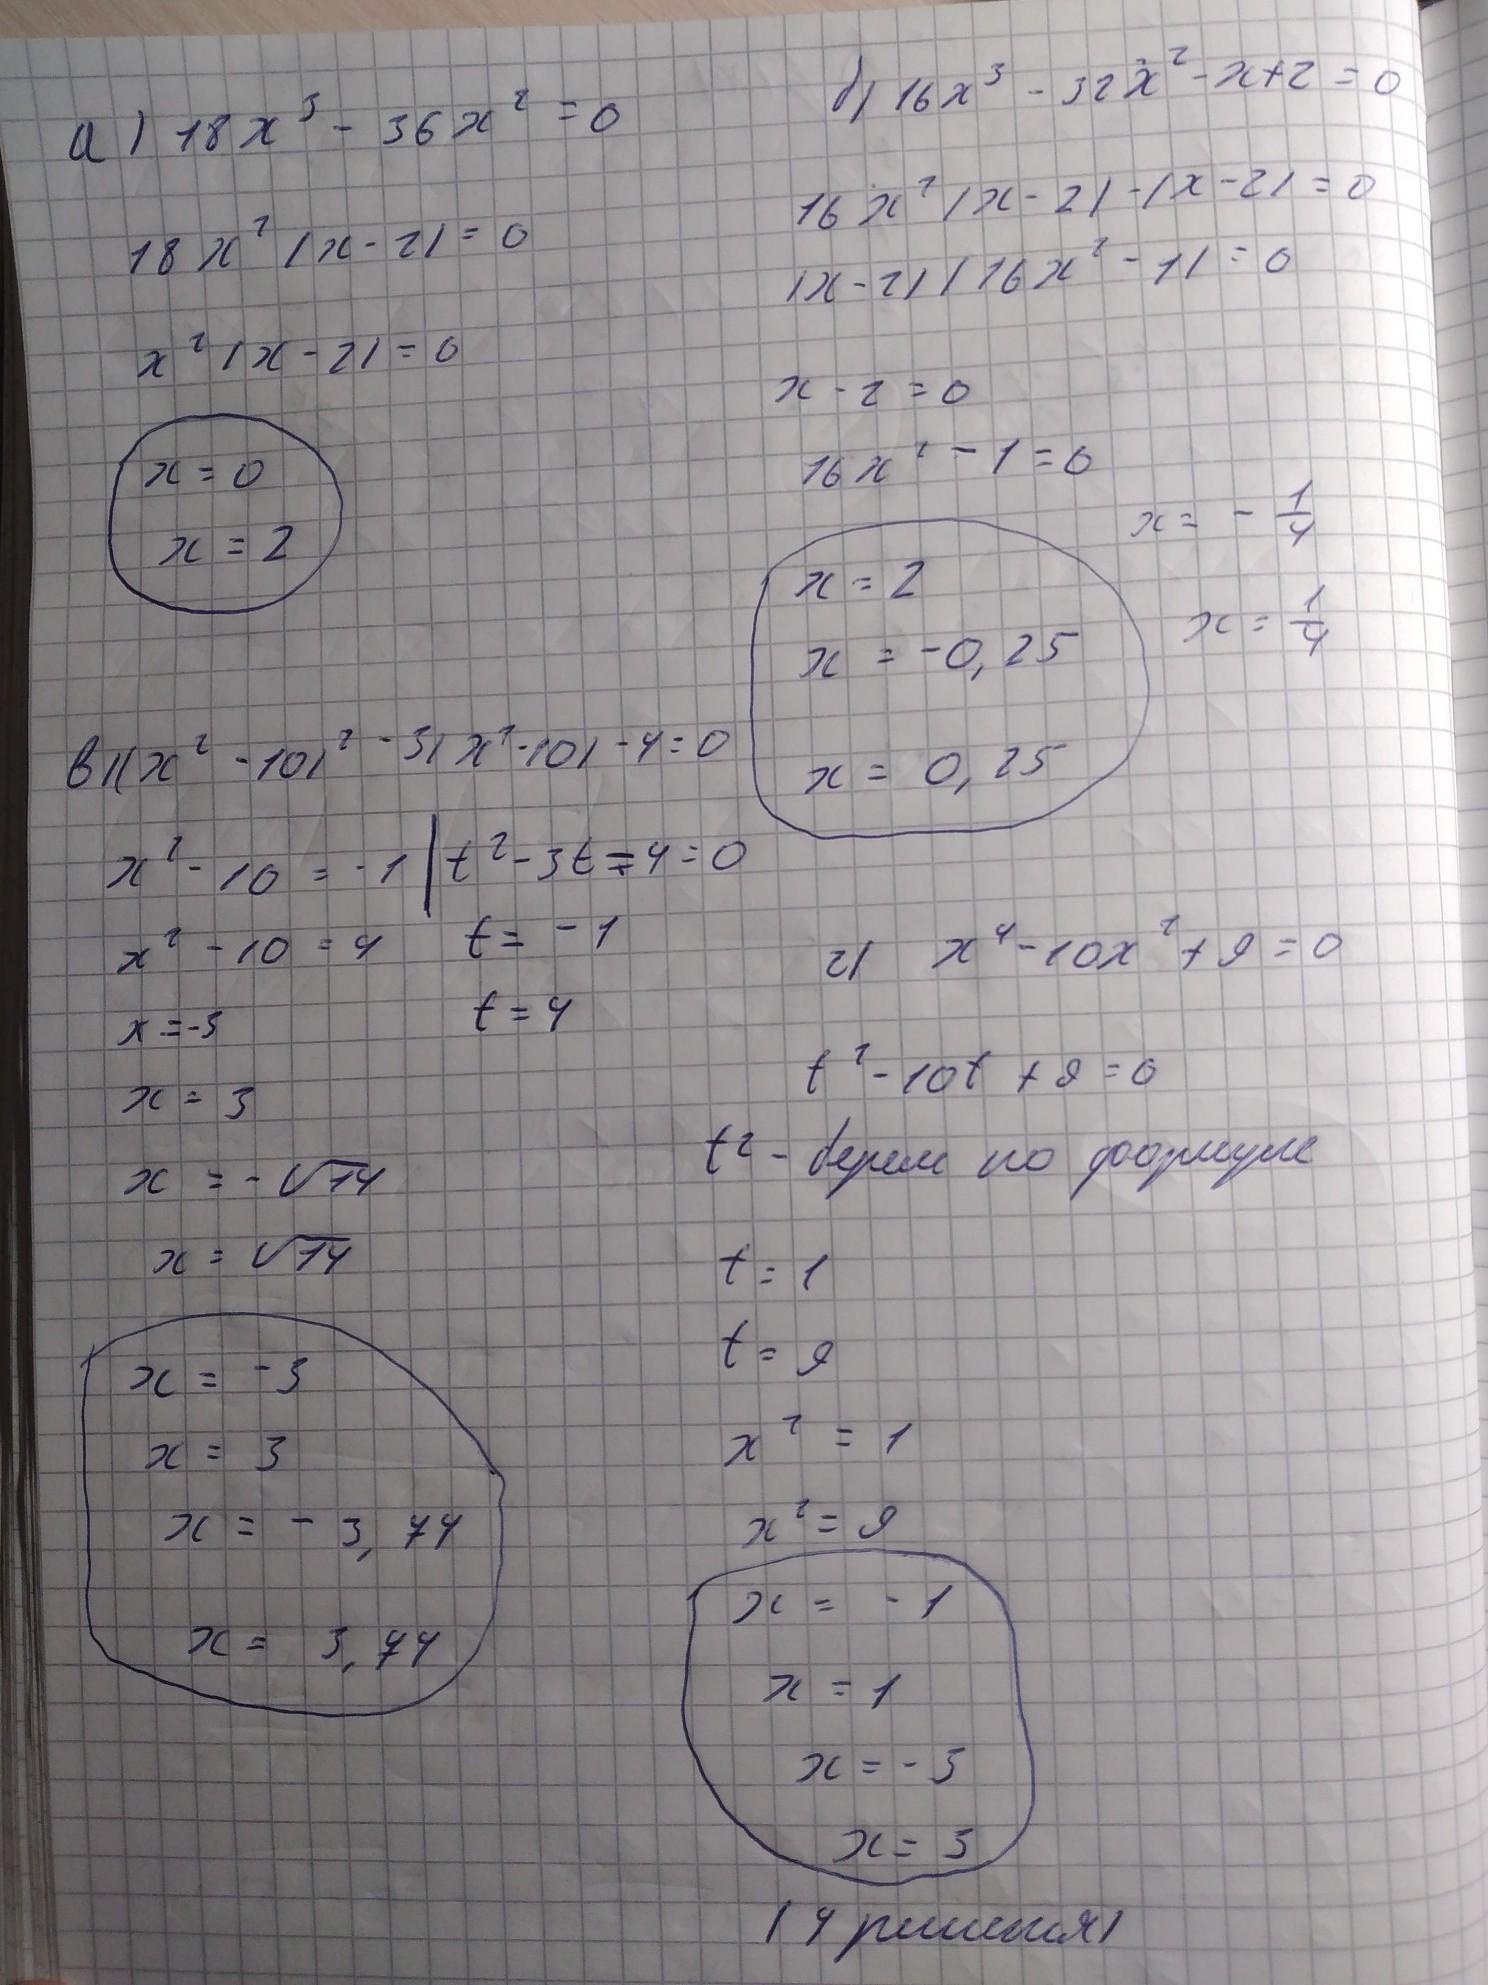 а) 18x³ - 36x² = 0
18x² (x - 2) = 0
x² (x - 2) = 0
x = 0
x = 2
б) 16x³ - 32x² - x + 2 = 0
16x² (x - 2) - (x - 2) = 0
(x - 2) (16x² - 1) = 0
x - 2 = 0
16x² - 1 = 0
x = - 1/4
x = 1/4
x = 2
x = -0,25
x = 0,25
в) (x² - 10)² - 3(x² - 10) - 4 = 0
x² - 10 = -1 | t² - 3t - 4 = 0
x² - 10 = 4 t = -1
x = -3 t = 4
x = 3
x = -√14
x = √14
x = -3
x = 3
x = -3,74
x = 3,74
г) x⁴ - 10x² + 9 = 0
t² - 10t + 9 = 0
t² - берем по формуле
t = 1
t = 9
x² = 1
x² = 9
x = -1
x = 1
x = -3
x = 3
(4 решения)